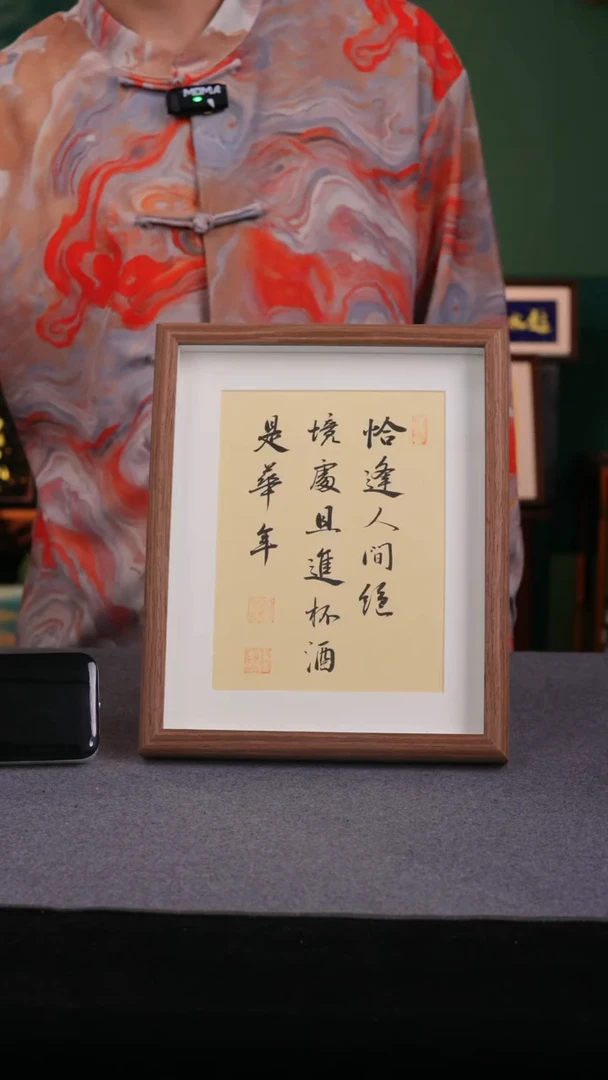 恰逢人間絕
境處且進杯酒
是華年
MOMA